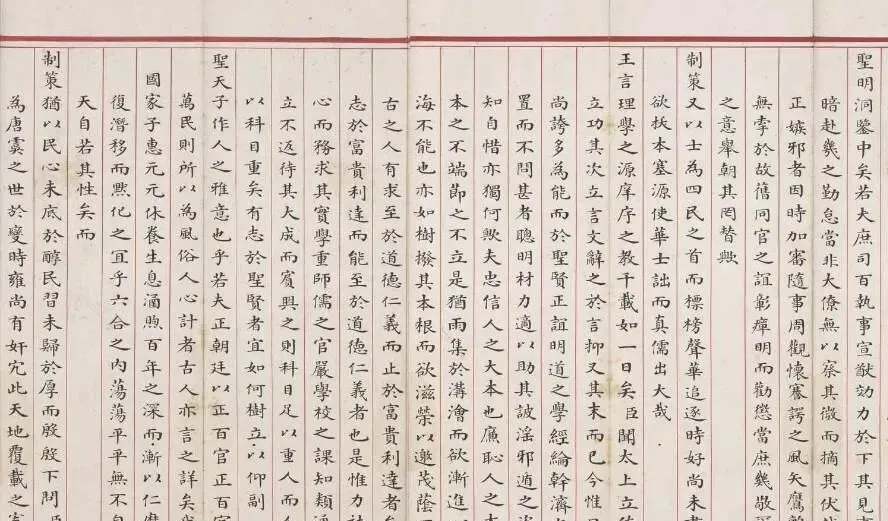 聖明洞鑒中矣若夫庶司百執事宣猷効力於下其見
暗赴幾之勤怠當非大僚無以察其微而摘其伏
正嫉邪者因時加審隨事周觀懷謇諤之風矢鷹
無牽於故舊同官之誼彰癉明而勸懲當庶幾敬
之意舉朝其罔替歟
制策又以士為四民之首而標榜聲華追逐時好尚未
欲拔本塞源使華士詘而真儒出大哉
王言理學之源庠序之教千載如一日矣臣聞太上立
立功其次立言文辭之於言抑又其末而已今惟
尚誇多為能而於聖賢正誼明道之學經綸幹濟
置而不問甚者聰明材力適以助其詖淫邪遁之
知自惜亦獨何歟夫忠信人之大本也廉恥人之大
本之不端節之不立是猶雨集於溝澮而欲漸進
海不能也亦如樹撥其本根而欲滋榮以邀茂蔭
古之人有求至於道德仁義而止於富貴利達者
志於富貴利達而能至於道德仁義者也是惟力
心而務求其實學重師儒之官嚴學校之課知類通
立不返待其大成而賓興之則科目足以重人而人
以科目重矣有志於聖賢者宜如何樹立以仰副
聖天子作人之雅意也乎若夫正朝廷以正百官正百官
萬民則所以為風俗人心計者古人亦言之詳矣
國家子惠元元休養生息涵煦百年之深而漸以仁
復潛移而默化之宜乎六合之內蕩蕩平平無不自
天自若其性矣而
制策猶以民心未底於醇民習未歸於厚而殷殷下問
為唐虞之世於變時雍尚有奸宄此天地覆載之